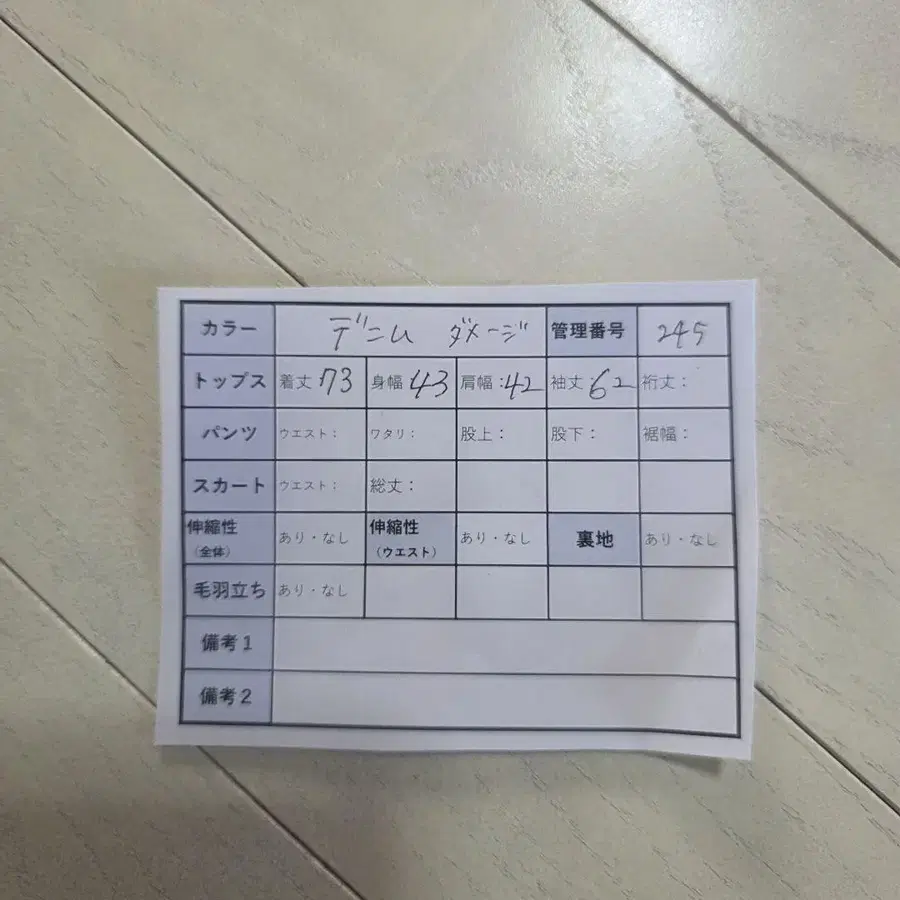 カラー デニム ダメージ 管理番号 245
トップス 着丈 73 身幅 43 肩幅: 42 袖丈 62 裄丈:
パンツ ウエスト: ワタリ: 股上: 股下: 裾幅:
スカート ウエスト: 総丈:
伸縮性 (全体) あり・なし 伸縮性 (ウエスト) あり・なし 裏地 あり・なし
毛羽立ち あり・なし
備考1
備考2